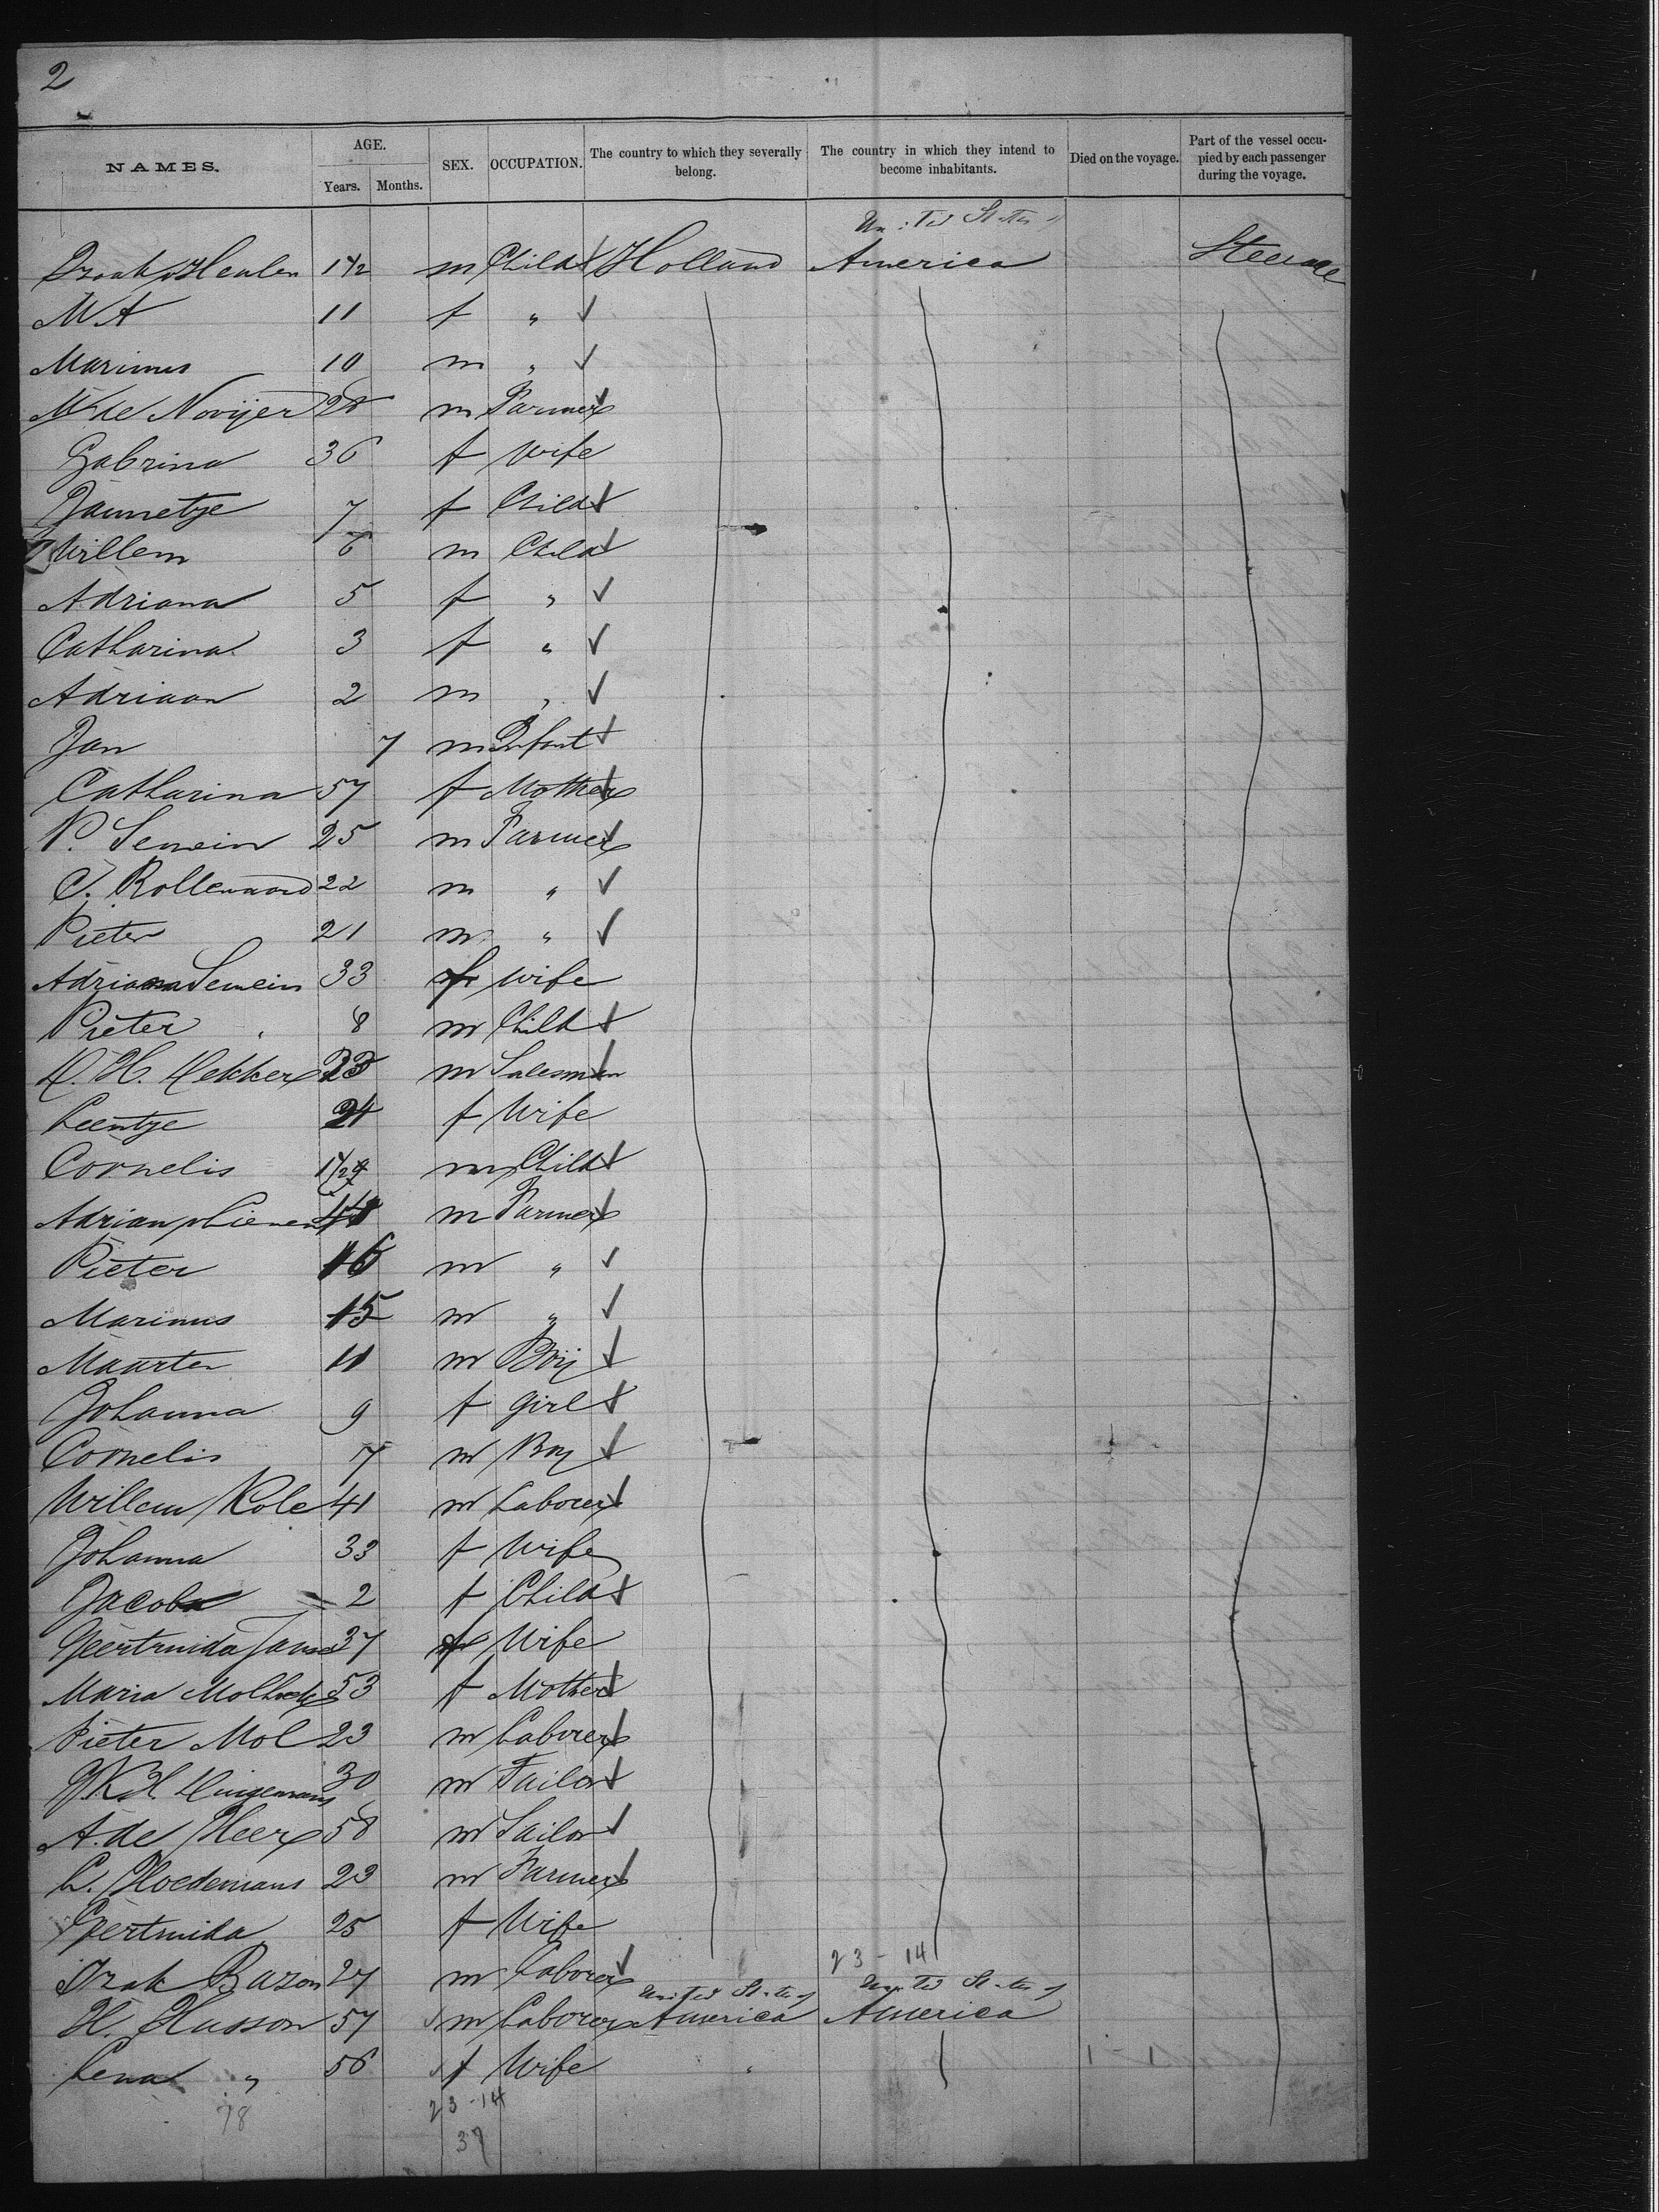 2
NAMES. AGE. Years. Months. SEX. OCCUPATION. The country to which they severally belong. The country in which they intend to become inhabitants. Died on the voyage. Part of the vessel occupied by each passenger during the voyage.
United States of
Izaak v Heulen 1 1/2 m Child Holland America Steerage
M A 11 f "
Marinus 10 m "
M de Novijer 28 m Farmer
Gabrina 36 f Wife
Jannetje 7 f Child
Willem 6 m Child
Adriana 5 f "
Catharina 3 f "
Adriaan 2 m "
Jan 7 m Infant
Catharina 57 f Mother
P. Semein 25 m Farmer
C. Rollewaard 22 m "
Pieter 21 m "
Adriana Semein 33 f Wife
Pieter " 8 m Child
H. Dekker 23 m Salesman
Leentje 24 f Wife
Cornelis 1 1/2 m Child
Adrian v m Farmer
Pieter 16 m "
Marinus 15 m "
Maarten 11 m Boy
Johanna 9 f Girl
Cornelis 7 m Boy
Willem Kole 41 m Laborer
Johanna 33 f Wife
Jacoba 2 f Child
Geertruida Janse 37 f Wife
Maria 53 f Mother
Pieter Mol 23 m Laborer
30 m Tailor
A. de Heer 58 m Sailor
L. Hoedemans 23 m Farmer
Geertruida 25 f Wife
Izak Bazon 27 m Laborer 23-14
United States of United States of
H. Husson 57 m Laborer America America
Lena " 56 f Wife " 1-1
78 23-14
37